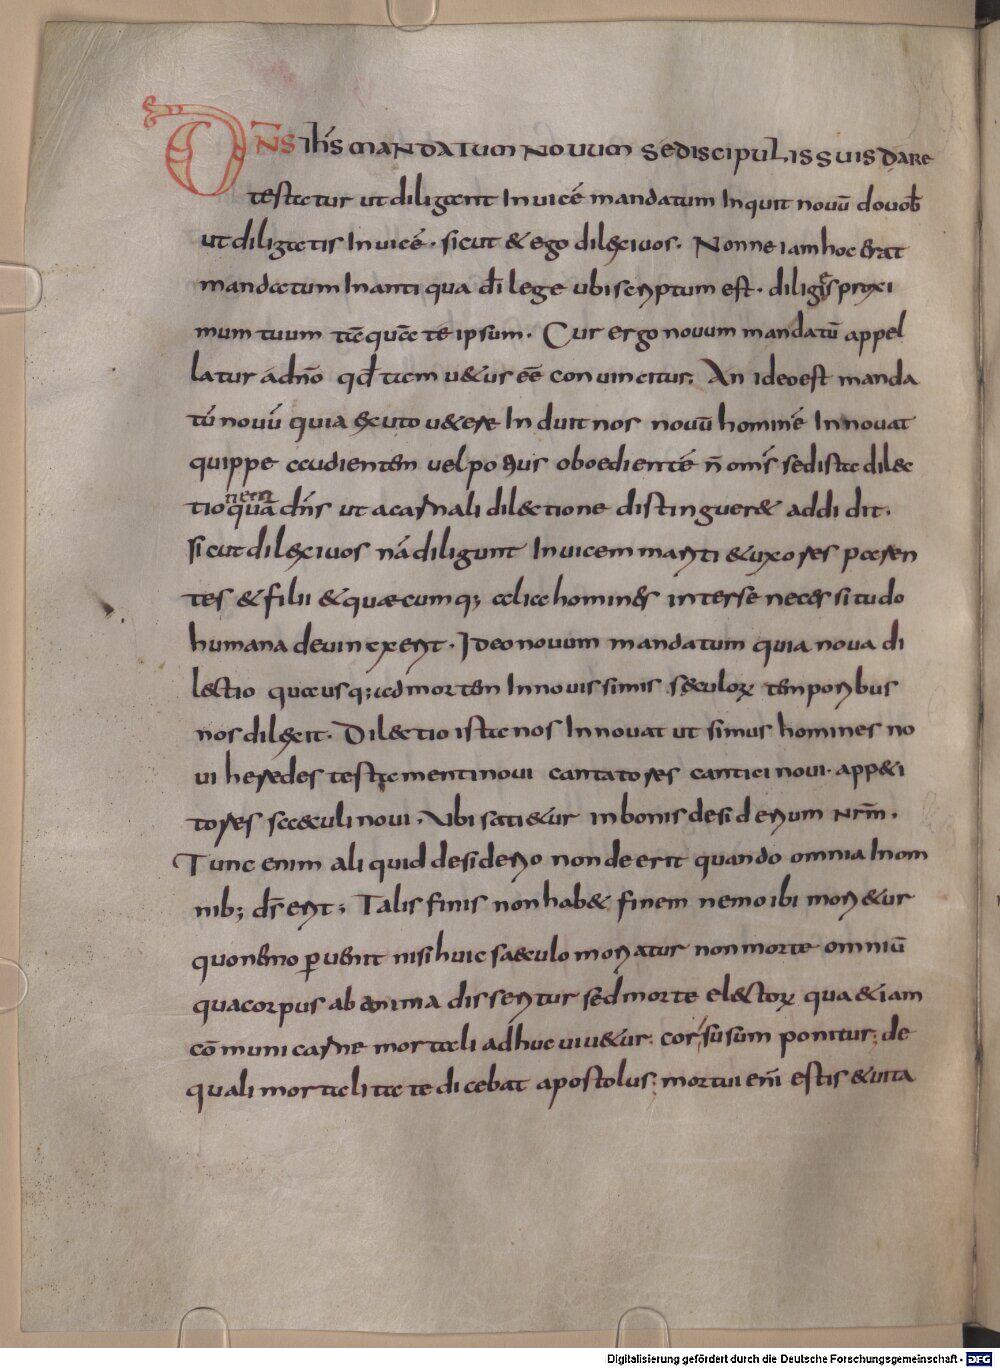 DN̄S ih̄s mandatum novum se discipulis suis dare
testatur ut diligant Inuicē mandatum Inquit nouū do uob̄
ut diligatis Inuicē. sicut & ego dilexi uos. Nonne iam hoc erat
mandatum In antiqua dī lege ubi scriptum est. diliges proxi
mum tuum tāquā te ipsum. Cur ergo nouum mandatū appel
latur a dn̄o qd̄ tam uetur eē conuincitur. An ideo est manda
tū nouū quia exuto uetere Induit nos nouū hominē Innouat
quippe audientem uel potius oboedientē n̄ om̄s sed ista dilec
tionem qua dn̄s ut a carnali dilectione distinguer& addidit.
sicut dilexi uos nā diligunt Inuicem mariti & uxores paren
tes & filii & quaecumq; alia homines inter se necessitudo
humana deuinxerit. Ideo nouum mandatum quia noua di
lectio qua usq; ad mortem In nouissimis saeculorꝝ temporibus
nos dilexit. Dilectio ista nos Innouat ut simus homines no
ui heredes testamenti noui cantatores cantici noui. app&i
tores saeculi noui. Ubi satietur in bonis desiderium nrm̄.
Tunc enim aliquid desiderio non deerit quando omnia In om
nib; ds̄ erit; Talis finis non hab& finem nemo ibi morietur
quo nemo ꝑuenit nisi huic saeculo moriatur non morte omniū
qua corpus ab anima disseritur sed morte electorꝝ qua etiam
cō muni carne mortali adhuc uiuetur. cor sursum ponitur; de
quali mortalitate dicebat apostolus; mortui enī estis & uita
Digitalisierung gefördert durch die Deutsche Forschungsgemeinschaft - DFG